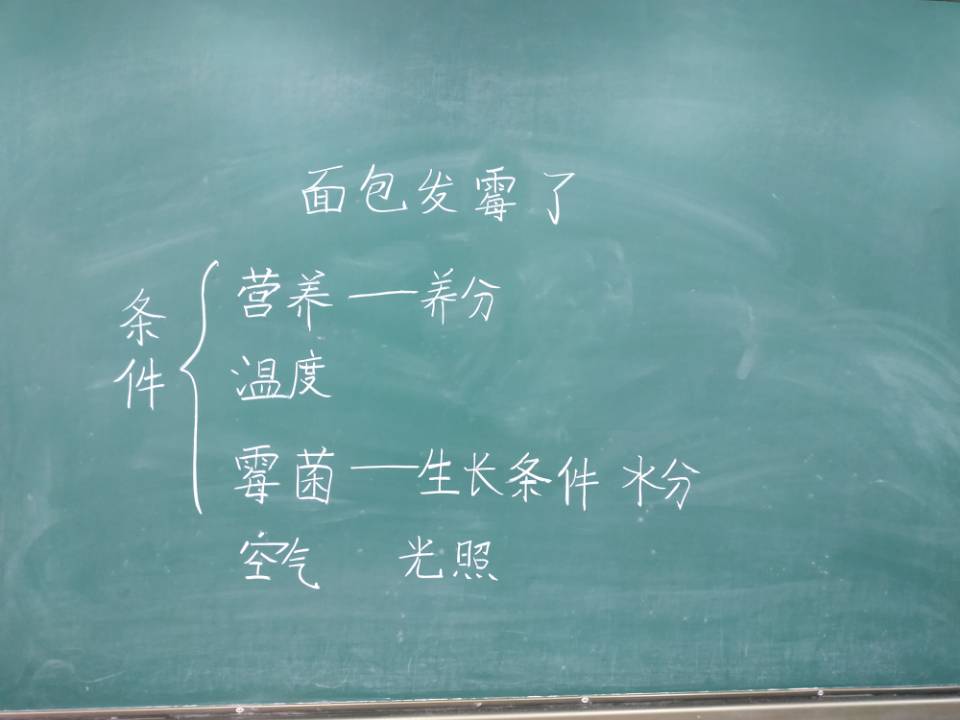 面包发霉了
条件
营养——养分
温度
霉菌——生长条件 水分
空气 光照